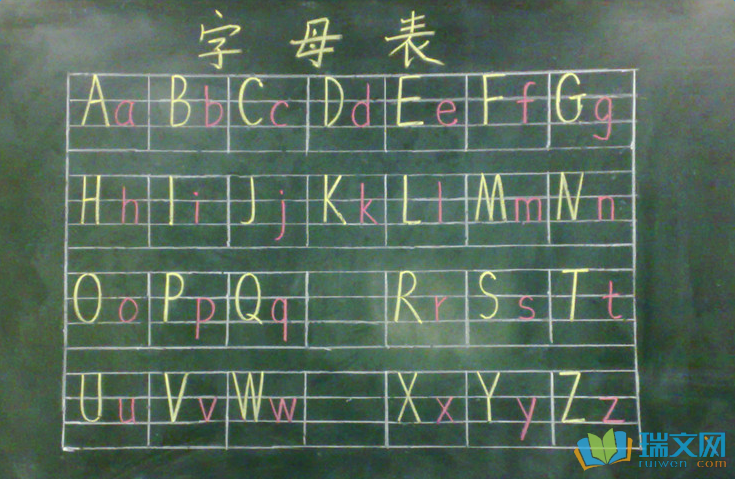 字母表
Aa Bb Cc Dd Ee Ff Gg
Hh Ii Jj Kk Ll Mm Nn
Oo Pp Qq Rr Ss Tt
Uu Vv Ww Xx Yy Zz
瑞文网
ruiwen.com